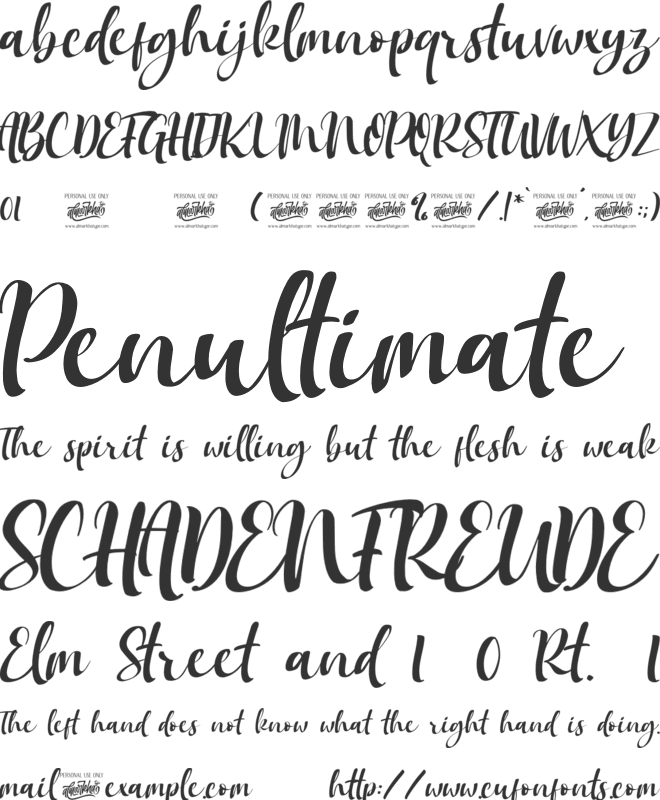 abcdefghijklmnopqrstuvwxyz
ABCDEFGHIJKLMNOPQRSTUVWXYZ
01 PERSONAL USE ONLY almarkhatype www.almarkhatype.com PERSONAL USE ONLY almarkhatype www.almarkhatype.com ( PERSONAL USE ONLY PERSONAL USE ONLY PERSONAL USE ONLY % PERSONAL USE ONLY / . ! * ` PERSONAL USE ONLY ' , PERSONAL USE ONLY : ; )
Penultimate
The spirit is willing but the flesh is weak
SCHADENFREUDE
Elm Street and 1 0 Rt. 1
The left hand does not know what the right hand is doing.
mail PERSONAL USE ONLY example.com http://www.cufonfonts.com